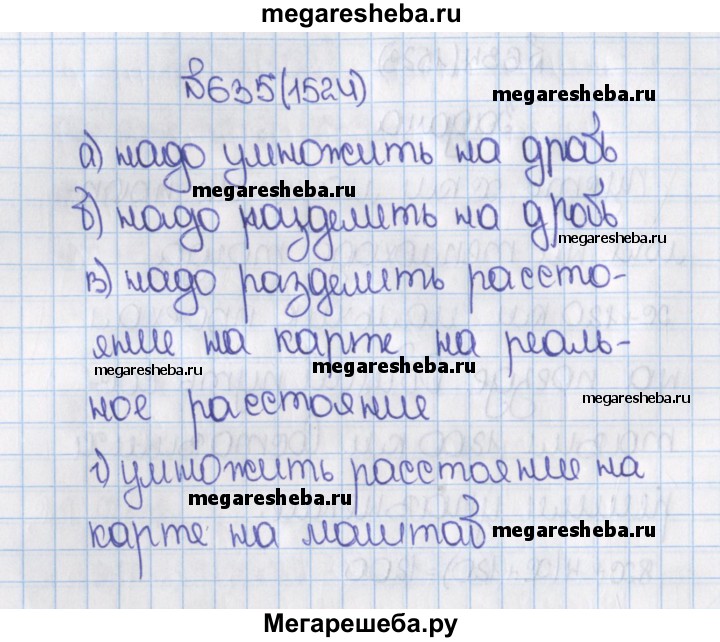 megaresheba.ru
№635(1524)
megaresheba.ru
а) надо умножить на дробь
megaresheba.ru
б) надо разделить на дробь
megaresheba.ru
в) надо разделить рассто-
яние на карте на реаль-
megaresheba.ru
megaresheba.ru
ное расстояние
megaresheba.ru
г) умножить расстояние на
megaresheba.ru
карте на маштаб
megaresheba.ru
Мегарешеба.ру